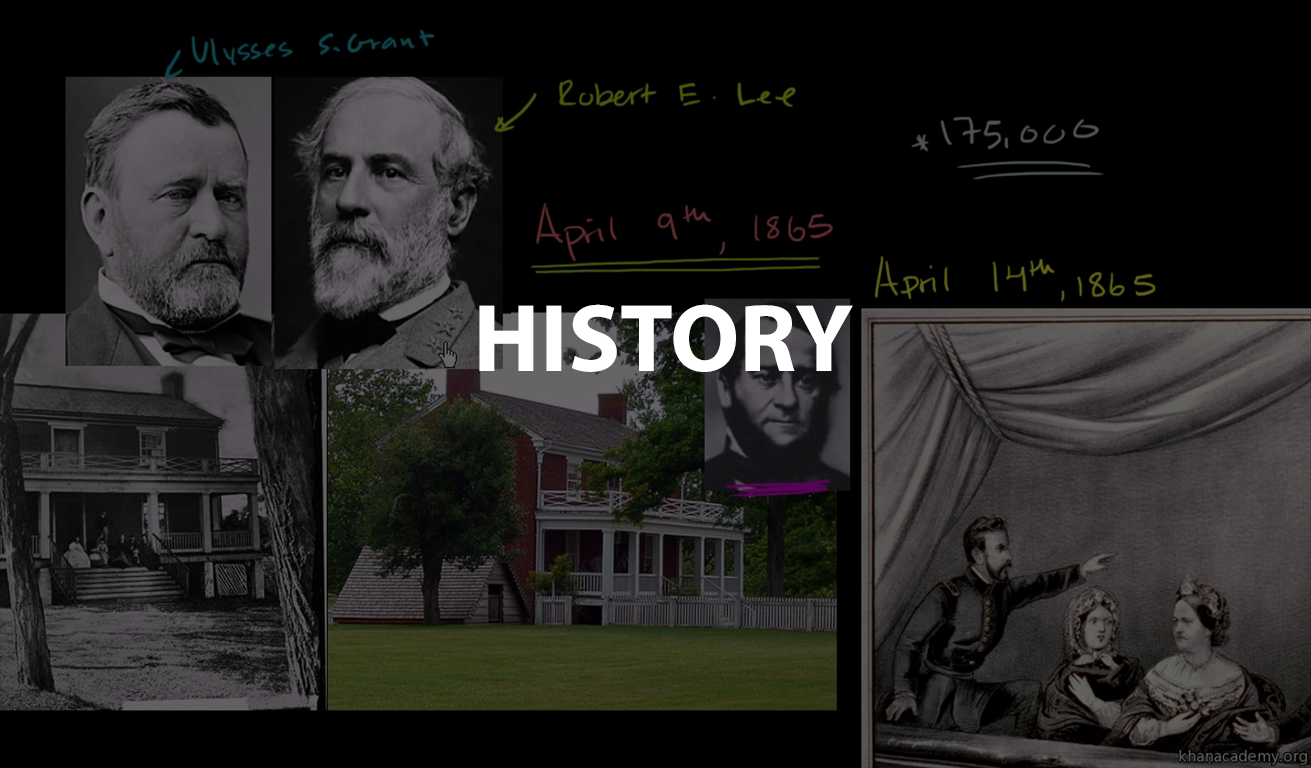 Ulysses S. Grant
Robert E. Lee
*175,000
April 9th, 1865
April 14th, 1865
HISTORY
khanacademy.org